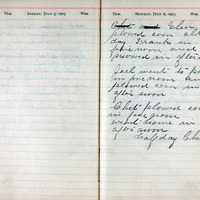 THER. SUNDAY, JULY 5, 1903 WEA.
THER. MONDAY, JULY 6, 1903 WEA.
Chet and Glen
plowed corn all
day Frank in
forenoon and
mowed in after
Joel went to
in forenoon and
plowed corn in
after noon
Chet plowed corn
in forenoon
went home in
after noon
half day Chet